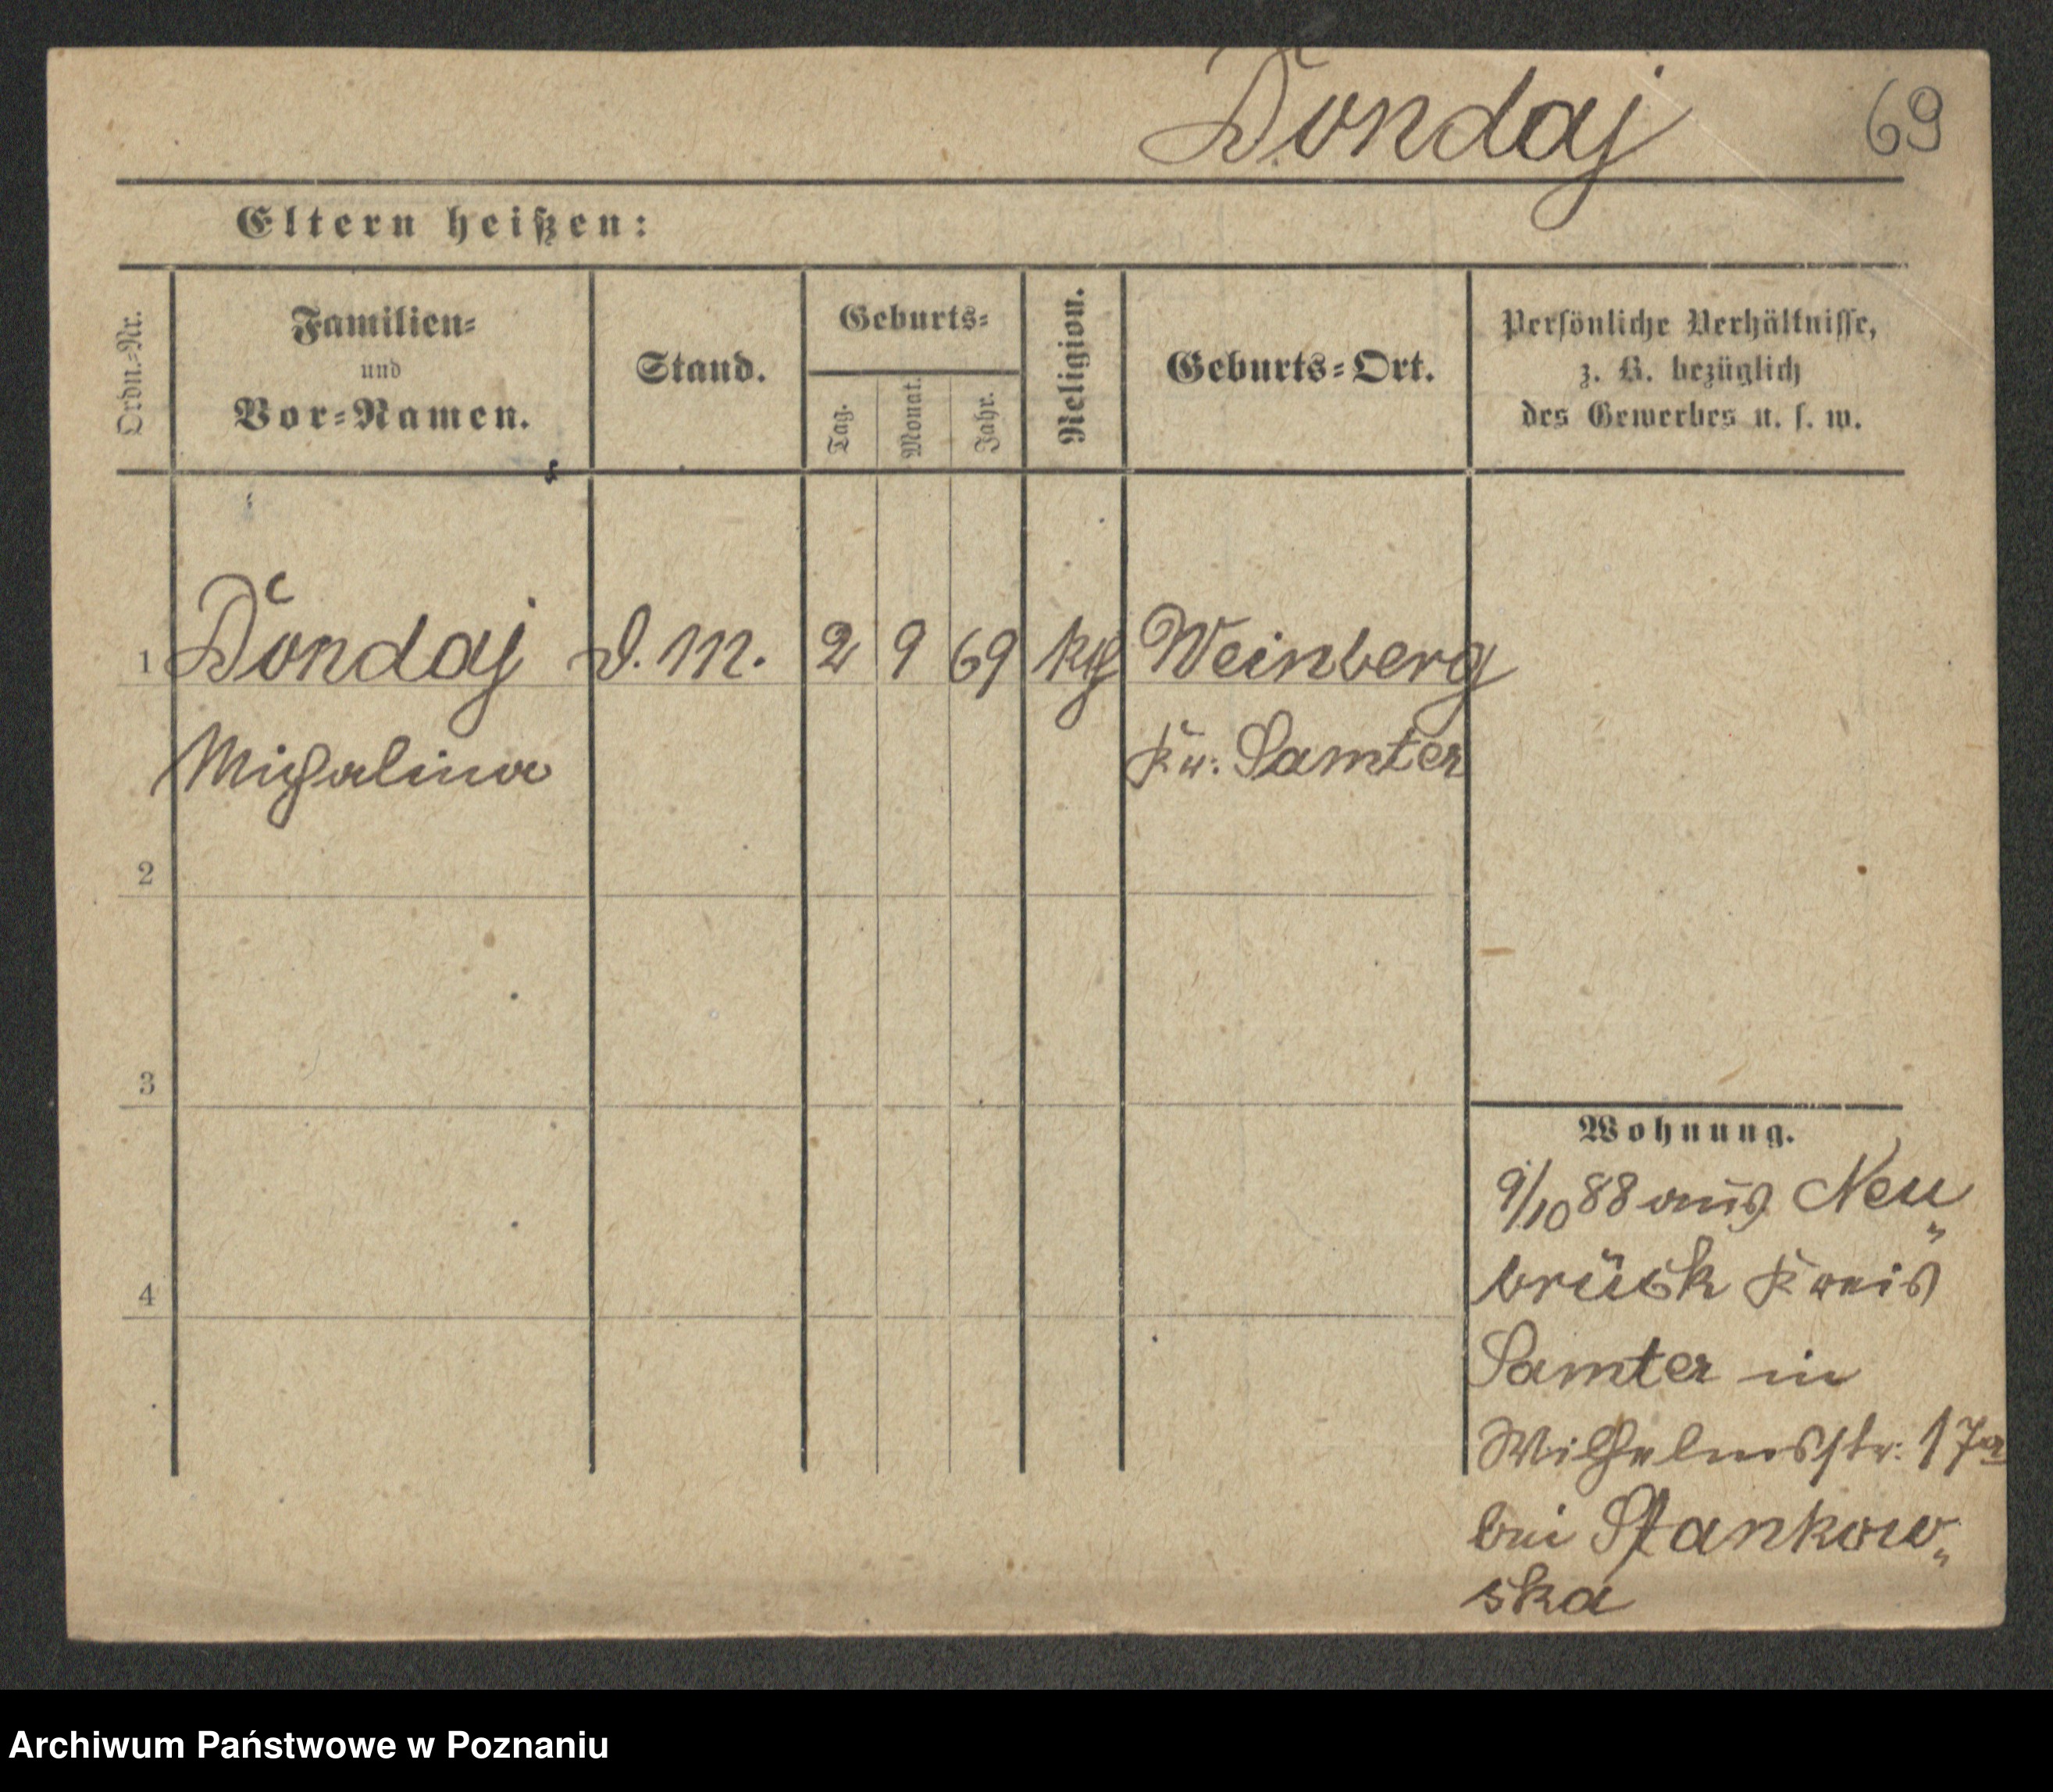 Dondaj 69
Eltern heißen:
Ordn.=Nr.
Familien=
und
Vor=Namen.
Stand.
Geburts=
Tag.
Monat.
Jahr.
Religion.
Geburts=Ort.
Persönliche Verhältnisse,
z. B. bezüglich
des Gewerbes u. s. w.
1 Dondaj d. M. 2 9 69 kg Weinberg
Michalina Kr. Samter
2
3
4
Wohnung.
9/10 88 aus Neu„
brück Kreis
Samter in
Wilhelmsstr. 17a
bei Stankow„
ska
Archiwum Państwowe w Poznaniu